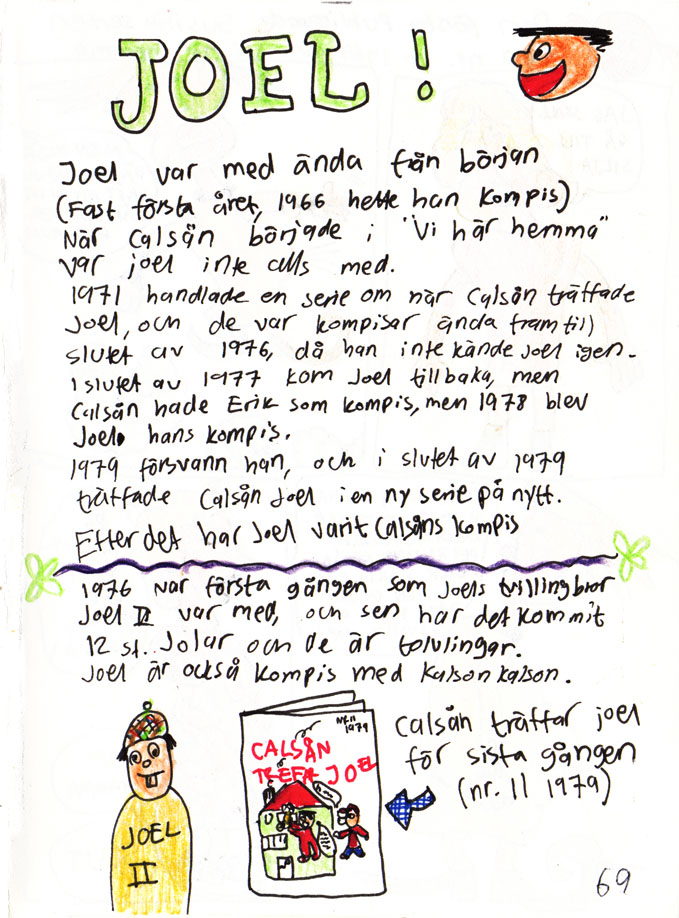 JOEL!
Joel var med ända från början
(Fast första året, 1966 hette han Kompis)
När Calsån började i "Vi här hemma"
var joel inte alls med.
1971 handlade en serie om när Calsån träffade
Joel, och de var kompisar ända fram till
slutet av 1976, då han inte kände Joel igen.
I slutet av 1977 kom Joel tillbaka, men
Calsån hade Erik som kompis, men 1978 blev
Joel hans kompis.
1979 försvann han, och i slutet av 1979
träffade Calsån Joel i en ny serie på nytt.
Efter det har Joel varit Calsåns kompis
1976 var första gången som Joels tvillingbror
Joel II var med, och sen har det kommit
12 st. Jolar och de är tolvlingar.
Joel är också kompis med Kalson kalson.
JOEL
II
Nr. 11
1979
CALSÅN
TREFA JOEL
Calsån träffar joel
för sista gången
(nr. 11 1979)
69